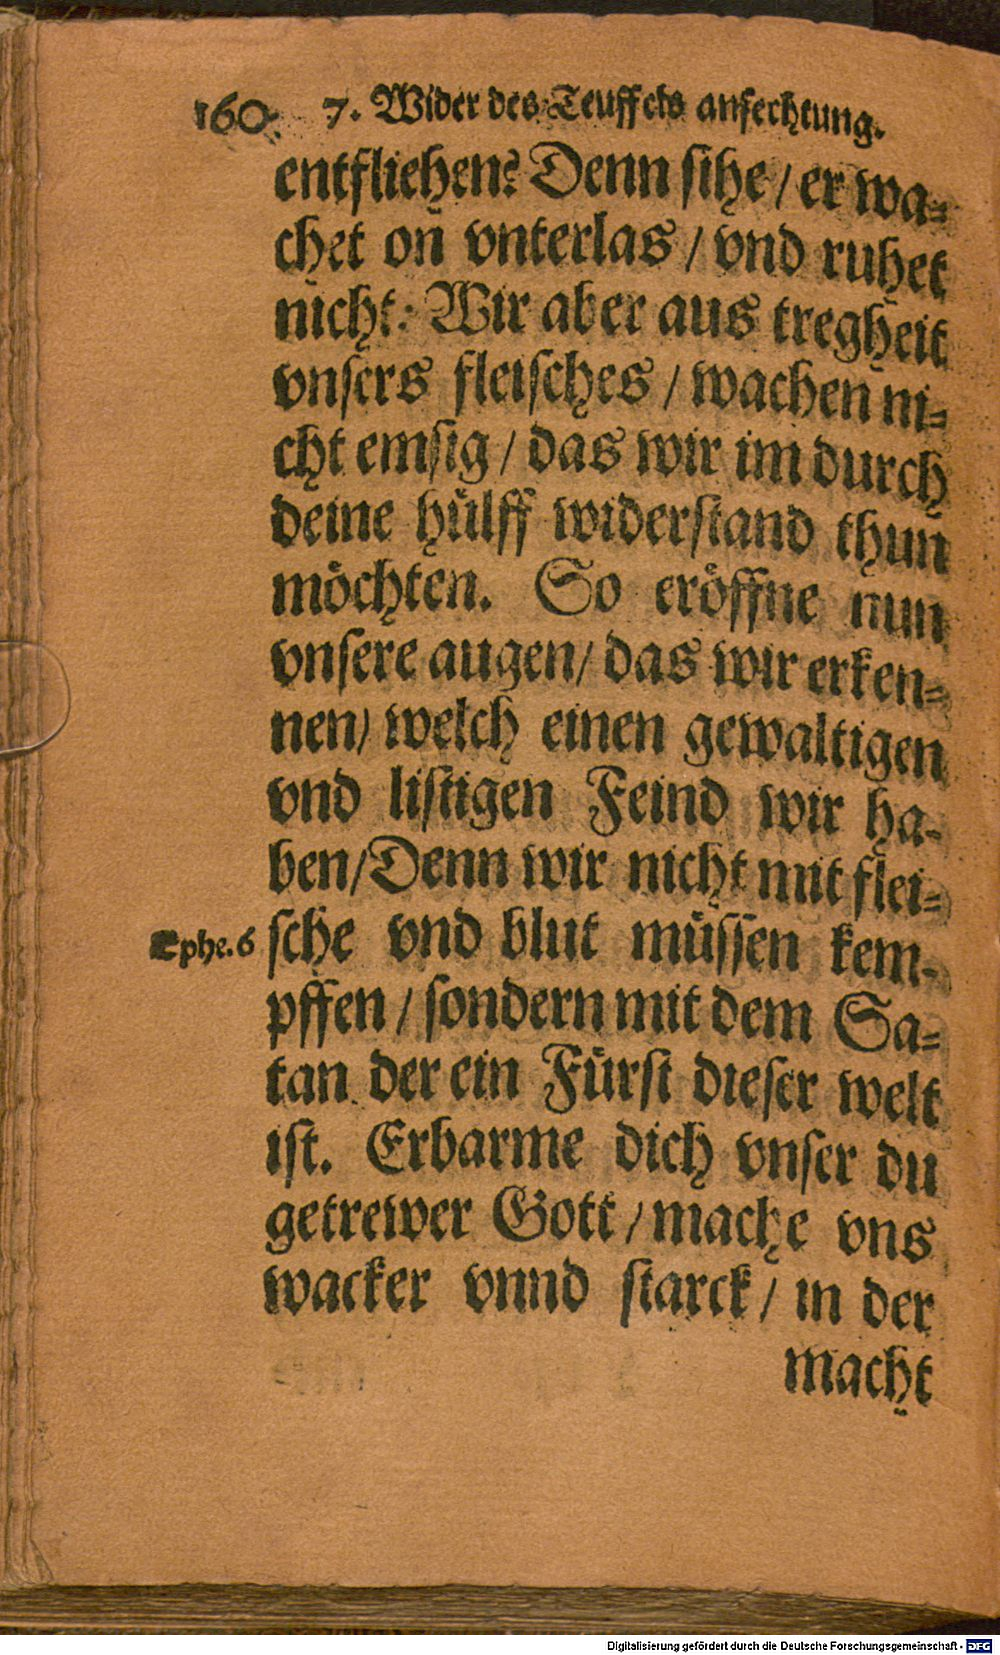 160. 7. Wider des Teuffels anfechtung.
entfliehen? Denn sihe / er wa-
chet on vnterlas / vnd ruhet
nicht: Wir aber aus tregheit
vnsers fleisches / wachen ni-
cht emsig / das wir im durch
deine hülff widerstand thun
möchten. So eröffne nun
vnsere augen / das wir erken-
nen / welch einen gewaltigen
vnd listigen Feind wir ha-
ben / Denn wir nicht mit flei-
Ephe. 6 sche vnd blut müssen kem-
pffen / sondern mit dem Sa-
tan der ein Fürst dieser welt
ist. Erbarme dich vnser du
getrewer Gott / mache vns
wacker vnnd starck / in der
macht
Digitalisierung gefördert durch die Deutsche Forschungsgemeinschaft - DFG